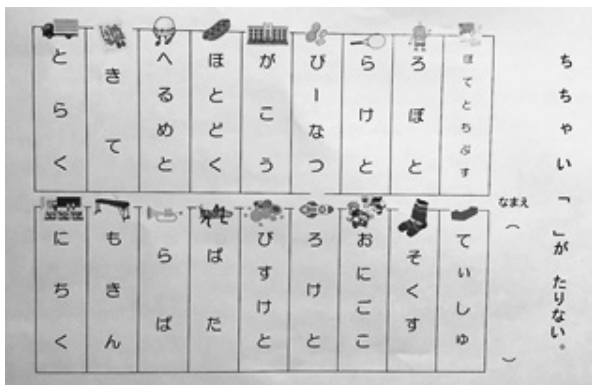 ちちゃい「 」が たりない。
なまえ（ ）
ぽてとちぷす
ろぼと
らけと
ぴーなつ
がこう
ほとどく
へるめと
きて
とらく
てぃしゅ
そくす
おにごこ
ろけと
びすけと
ばた
らぱ
もきん
にちく